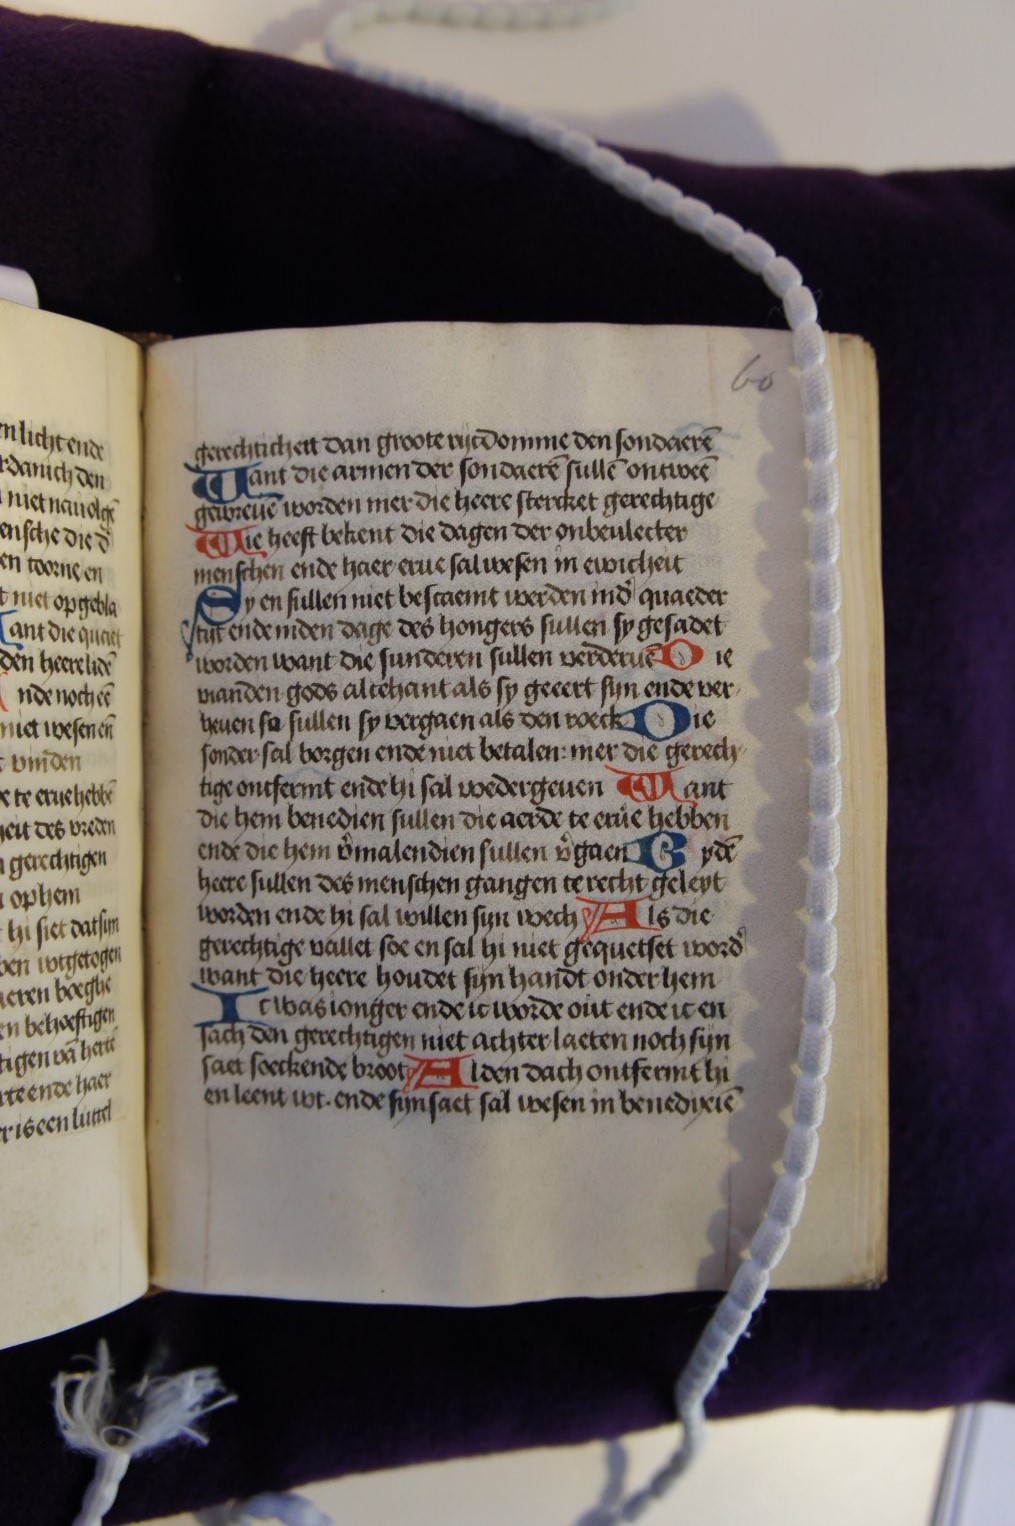 en licht ende
rdanich den
niet nauolgē
ensche die d
en toorne en
t niet opgebla
ant die quaet
den heere lidē
nde noch eē
niet wesen en
vinden
te erue hebbē
heit des vreden
gerechtigen
op hem
hi siet dat sijn
ben wtgetogen
aeren boeghe
en behoeftigen
tigen vā herte
rte ende haer
er is een luttel
60
gerechticheit dan groote rijcdomme den sondaerē
Want die armen der sondaerē sullē ontwee
gebreuē worden mer die heere stercket gerechtige
Die heeft bekent die dagen der onbeulecter
menschen ende haer erue sal wesen in ewicheit
Sy en sullen niet bescaemt werden ind' quaeder
tijt ende inden dage des hongers sullen sy gesadet
worden want die sunderen sullen verderuē Die
vianden gods altehant als sy geeert sijn ende ver
heuen so sullen sy vergaen als den roeck Die
sonder sal borgen ende niet betalen: mer die gerech
tige ontfermt ende hi sal wedergeuen Want
die hem benedien sullen die aerde te erue hebben
ende die hem v'malendien sullen v'gaen Bydē
heere sullen des menschen gangen te recht geleyt
worden ende hi sal willen sijn wech Als die
gerechtige vallet soe en sal hi niet gequetset word'
want die heere houdet sijn handt onder hem
Ic was ionger ende ic worde out ende ic en
sach den gerechtigen niet achter laeten noch sijn
saet soeckende broot Alden dach ontfermt hi
en leent wt. ende sijn saet sal wesen in benedixiē